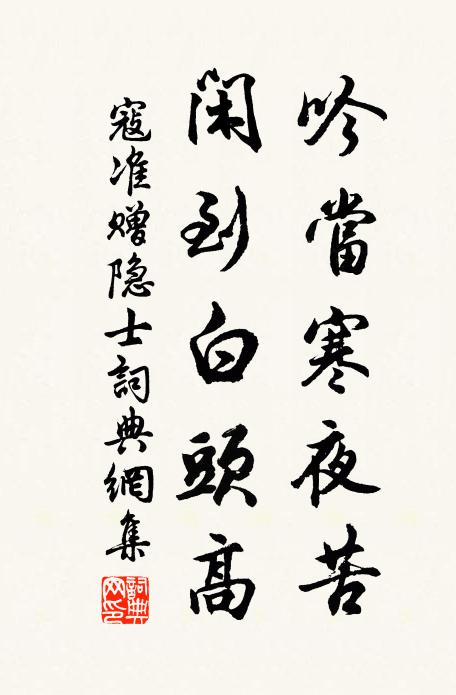 吟當寒夜苦
閑到白頭高
寇准赠隐士詞典網集
詞典網印